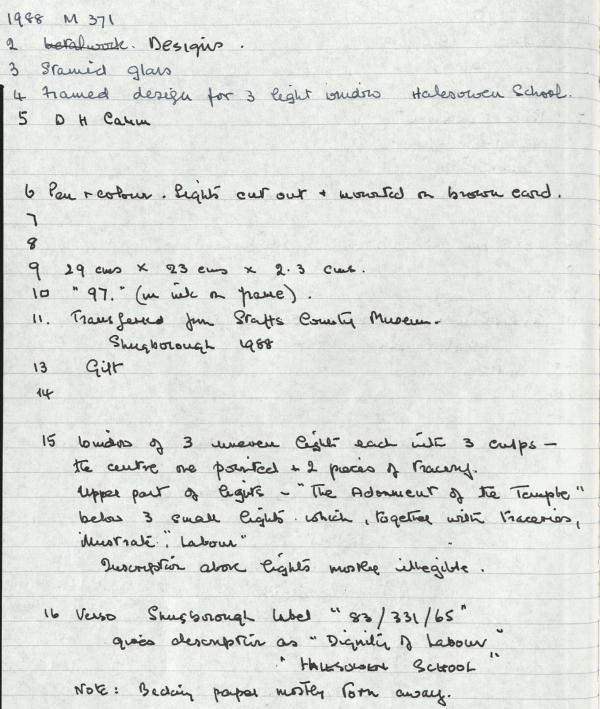 1988 M 371
2 Metalwork. Designs.
3 Stained glass
4 Framed design for 3 light window Halesowen School.
5 D H
6 Pen + colour. Lights cut out + mounted on brown card.
7
8
9 29 cms x 23 cms x 2.3 cms.
10 "97." (in ink on frame).
11. Transferred from Staffs County Museum.
Shugborough 1988
13 Gift
14
15 Window of 3 uneven lights each with 3 cusps —
the centre one pointed + 2 pieces of tracery.
Upper part of lights - "The Adornment of the Temple"
below 3 small lights which, together with traceries,
illustrate "Labour"
Inscription above lights mostly illegible.
16 Verso Shugborough label "83/331/65"
gives description as "Dignity of Labour"
"HALESOWEN SCHOOL"
Note: Backing paper mostly torn away.